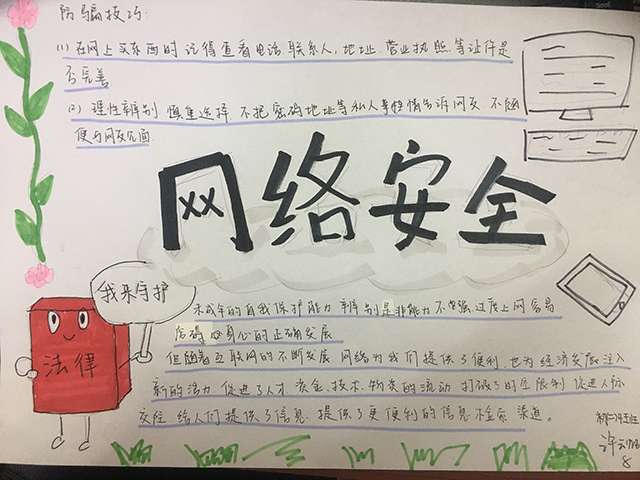 防骗技巧:
(1) 在网上买东西时 记得查看电话 联系人, 地址 营业执照 等证件是
否完善
(2) 理性辨别 慎重选择 不把密码地址等私人事情告诉网友 不随
便与网友见面
网络安全
我来守护
法律
未成年的自我保护能力 辨别是非能力不够强 过度上网容易
身心的正确发展
但随着互联网的不断发展 网络为我们提供了便利, 也为经济发展注入
新的活力 促进了人才 资金 技术 物资的流动 打破了时空限制 促进人际
交往 给人们提供了信息 提供了更便利的信息 渠道。
8